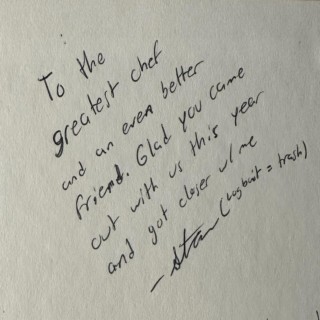 To the
greatest chef
and an even better
friend. Glad you came
out with us this year
and got closer w/ me
- Stan (      = trash)